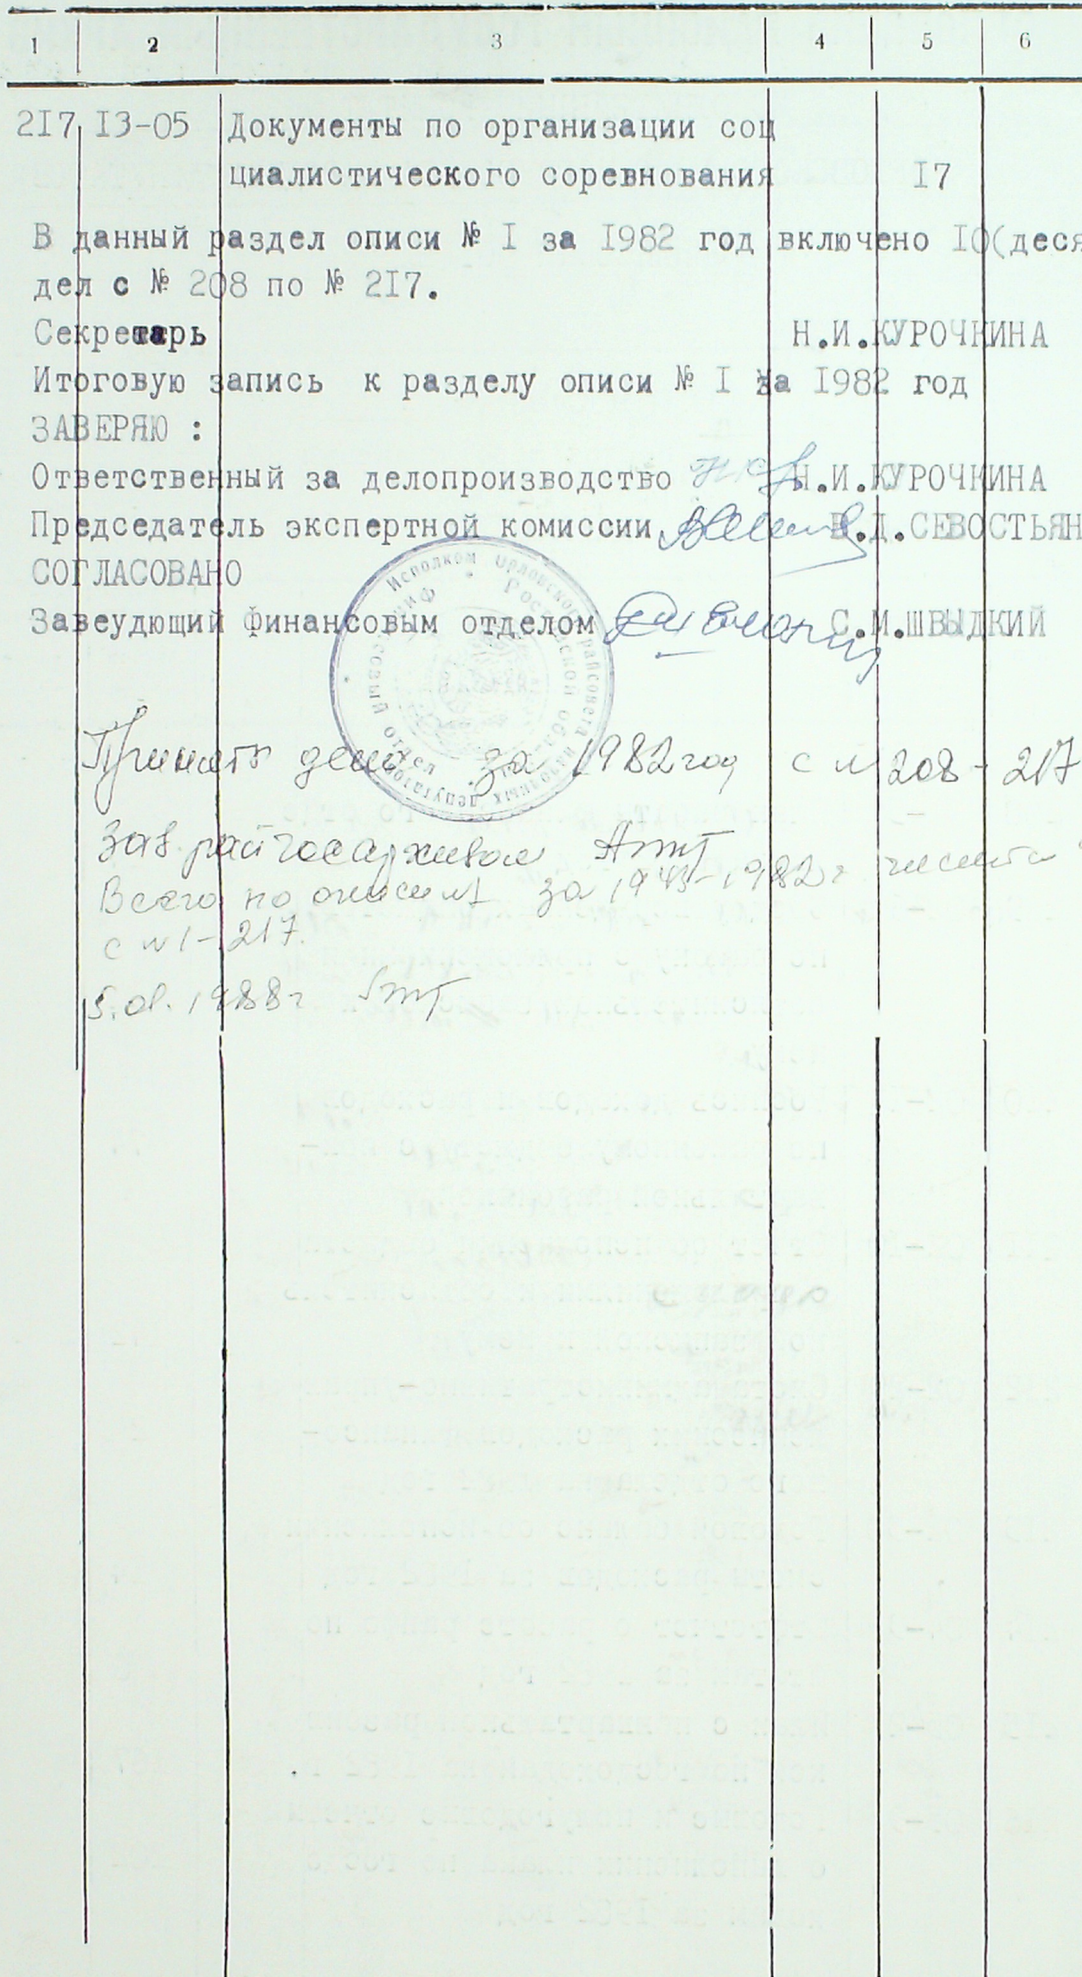 1 2 3 4 5 6
217 13-05 Документы по организации соц
циалистического соревнования 17
В данный раздел описи № I за 1982 год включено 10(деся
дел с № 208 по № 217.
Секретарь Н.И.КУРОЧКИНА
Итоговую запись к разделу описи № I за 1982 год
ЗАВЕРЯЮ :
Ответственный за делопроизводство Н.И.КУРОЧКИНА
Председатель экспертной комиссии В.Д.СЕВОСТЬЯН
СОГЛАСОВАНО
Завеудющий финансовым отделом С.М.ШВЫДКИЙ
Исполком Орловского райсовета народных депутатов
Ростовской обл.
Финансовый отдел
Принято дела за 1982 год с № 208-217
Зав. райгосархивом
Всего по описи №1 за 1943-1982г числится
с №1-217.
5.01.1988г